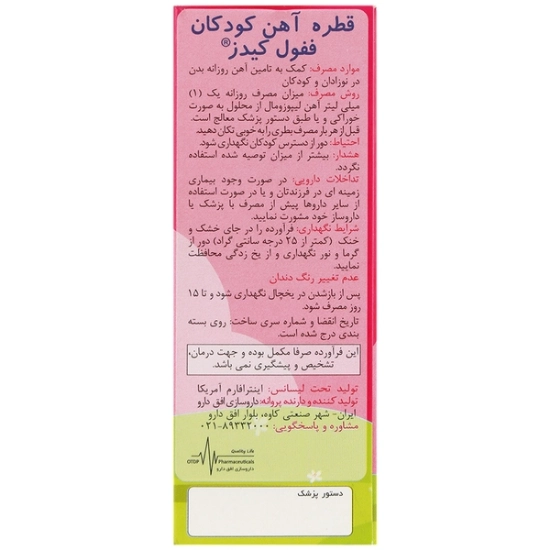 قطره آهن کودکان
ففول کیدز®
موارد مصرف: کمک به تامین آهن روزانه بدن
در نوزادان و کودکان
روش مصرف: میزان مصرف روزانه یک (۱)
میلی لیتر آهن لیپوزومال از محلول به صورت
خوراکی و یا طبق دستور پزشک معالج است.
قبل از هر بار مصرف بطری را به خوبی تکان دهید.
احتیاط: دور از دسترس کودکان نگهداری شود.
هشدار: بیشتر از میزان توصیه شده استفاده
نگردد.
تداخلات دارویی: در صورت وجود بیماری
زمینه ای در فرزندتان و یا در صورت استفاده
از سایر داروها پیش از مصرف با پزشک یا
داروساز خود مشورت نمایید.
شرایط نگهداری: فرآورده را در جای خشک و
خنک (کمتر از ۲۵ درجه سانتی گراد) دور از
گرما و نور نگهداری و از یخ زدگی محافظت
نمایید.
عدم تغییر رنگ دندان
پس از بازشدن در یخچال نگهداری شود و تا ۱۵
روز مصرف شود.
تاریخ انقضا و شماره سری ساخت: روی بسته
بندی درج شده است.
این فرآورده صرفا مکمل بوده و جهت درمان،
تشخیص و پیشگیری نمی باشد.
تولید تحت لیسانس: اینترافارم آمریکا
تولید کننده و دارنده پروانه: داروسازی افق دارو
ایران- شهر صنعتی کاوه، بلوار افق دارو
مشاوره و پاسخگویی: ۸۹۳۳۲۰۰۰-۰۲۱
Life Quality
OTDP Pharmaceuticals
داروسازی افق دارو
دستور پزشک